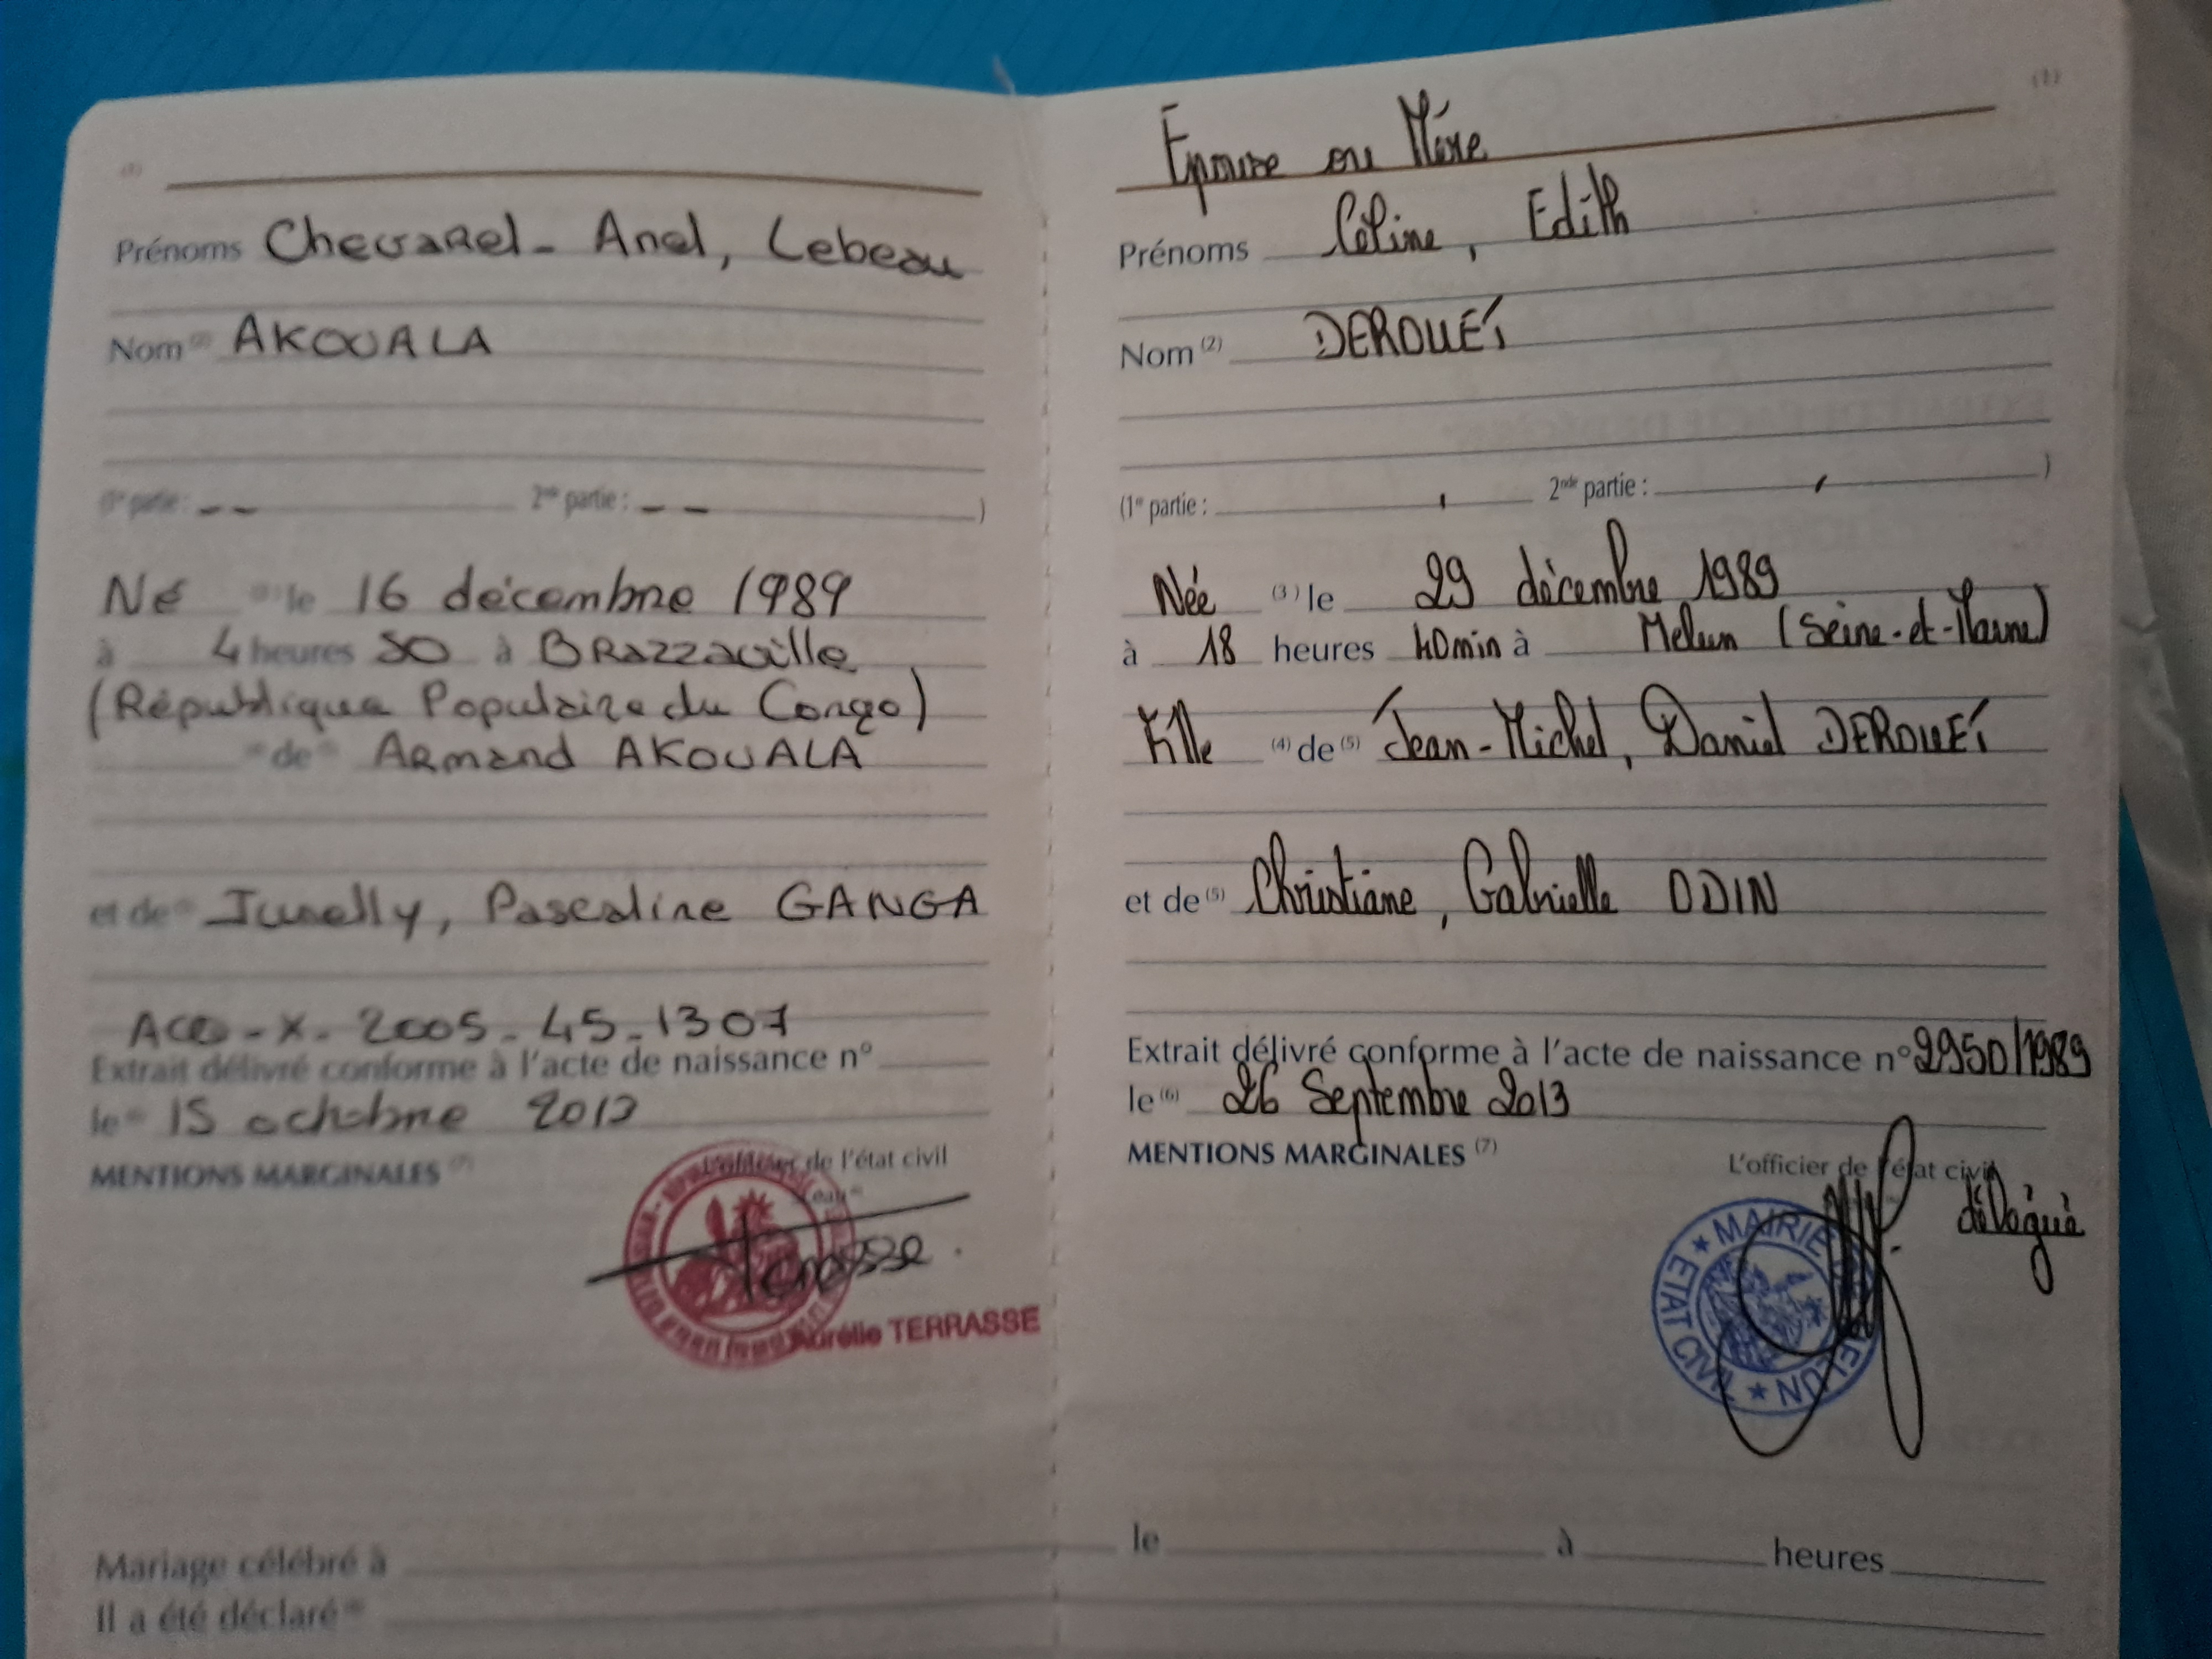 Prénoms Chevarel - Anel, Lebeau
Nom AKOUALA
(1re partie : -- 2nde partie : -- )
Né le 16 décembre 1989
à 4 heures 50 à Brazzaville
(République Populaire du Congo)
de Armand AKOUALA
et de Juselly, Pascaline GANGA
ACQ-X-2005-45-1307
Extrait délivré conforme à l'acte de naissance n°
le 15 octobre 2013
MENTIONS MARGINALES (7)
L'officier de l'état civil
Terrasse
Aurélie TERRASSE
Mariage célébré à
Il a été déclaré
(1)
Épouse ou Mère
Prénoms Céline, Edith
Nom (2) DEROUET
(1re partie : 2nde partie : )
Née (3) le 29 décembre 1989
à 18 heures 40min à Melun (Seine-et-Marne)
Fille (4) de (5) Jean-Michel, Daniel DEROUET
et de (5) Christiane, Gabrielle ODIN
Extrait délivré conforme à l'acte de naissance n° 2950/1989
le (6) 26 Septembre 2013
MENTIONS MARGINALES (7)
L'officier de l'état civil
délégué
MAIRIE DE MELUN ★ ETAT CIVIL ★
le à heures